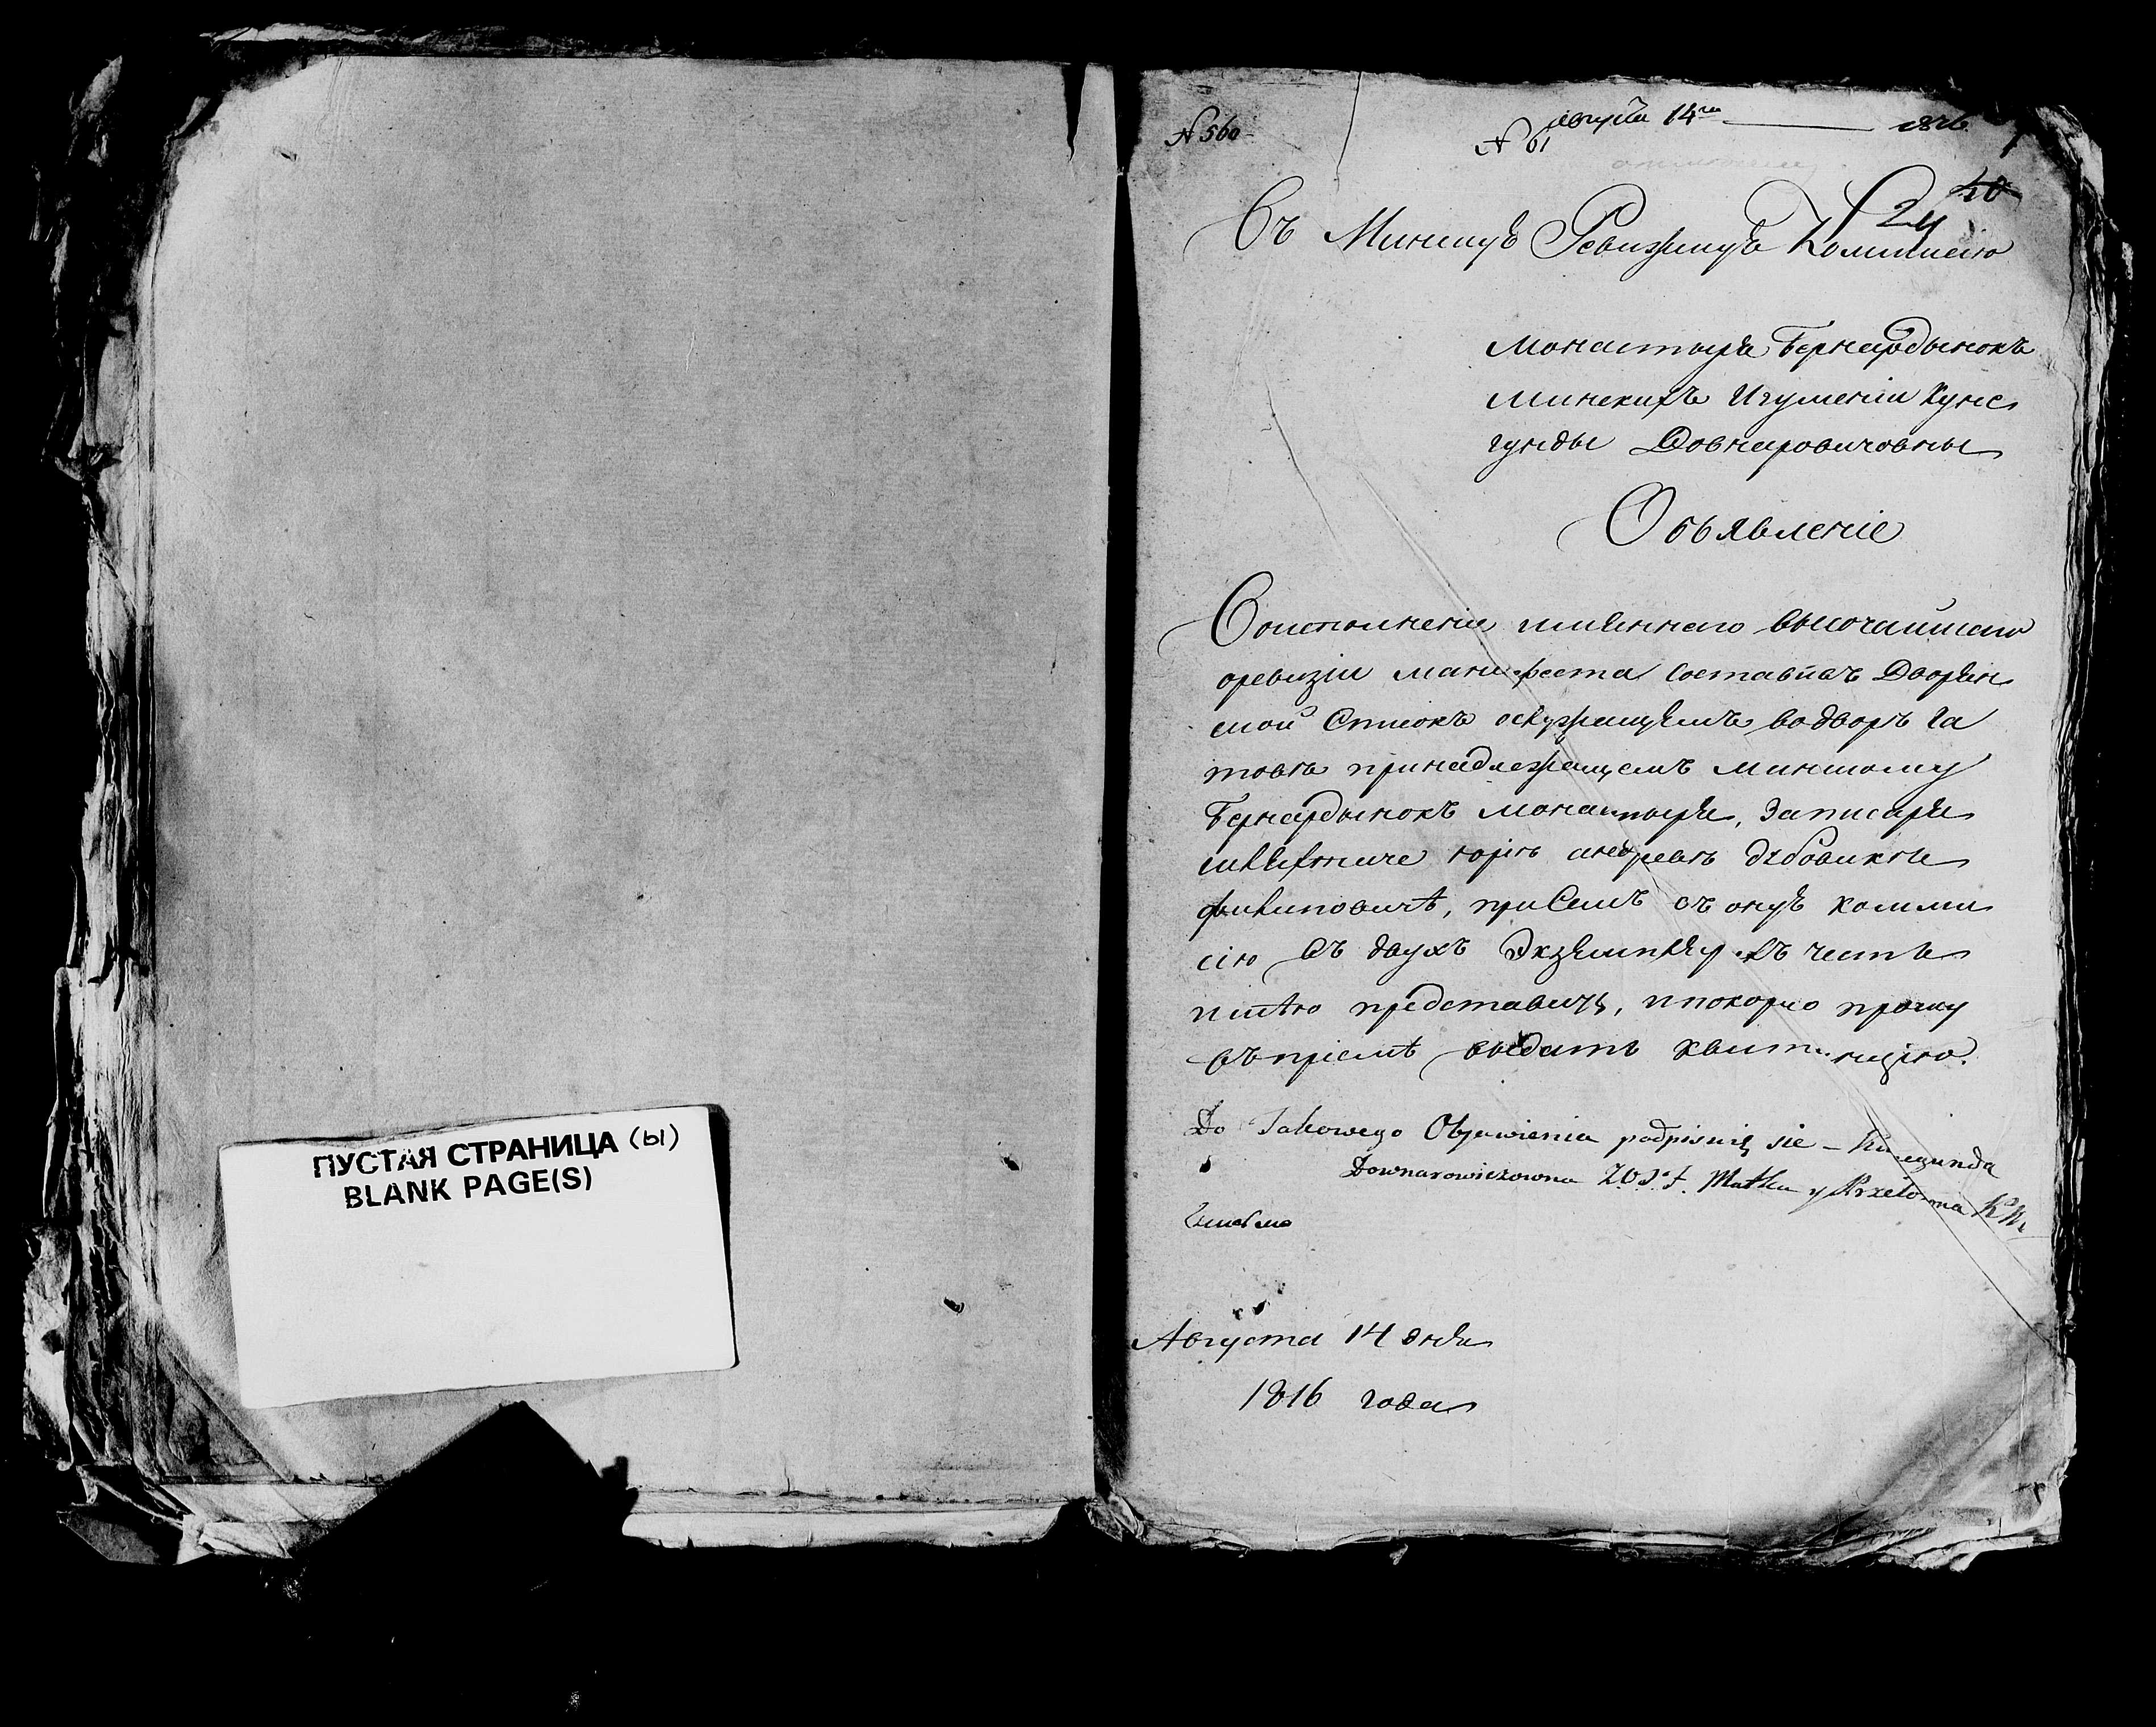 ПУСТАЯ СТРАНИЦА (ы)
BLANK PAGE(S)
№ 560
№ 61
августа 14го 1816
40
24
Въ Минскую Ревизкую Коммисию
Монастыря Бернардынокъ
Минскихъ Игумении Куне
гунды Довнаровичовны
Объявление
Воисполнение имяннаго высочайшаго
оревизіи манифеста составивъ Дворян
ской Списокъ ослужащемъ водворъ Га
товъ принадлежащемъ минскому
Бернардынокъ монастыря, Записаря
шляхтиче юрія андреевъ
филиповичѣ, присемъ въ оную комми
сію въ двухъ Экземплярахъ честь
имѣю представить, и покорно прошу
въ пріемѣ выдать квитанцію.
Do Takowego Objawienia podpisuię sie – Kunegunda
Downarowiczowna Z O S F. Matka y Przełożona
Августа 14 дня
1816 года